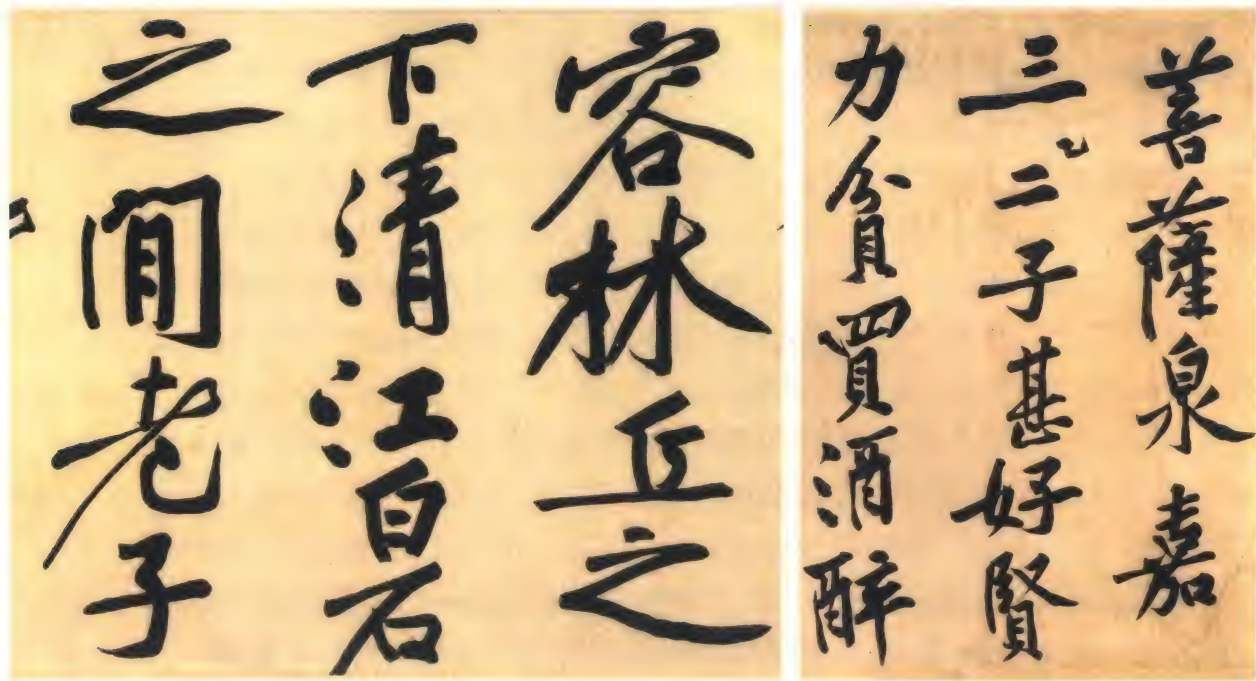 菩薩泉嘉
三二子甚好賢
力貧買酒醉
容林丘之
下清江白石
之閒老子